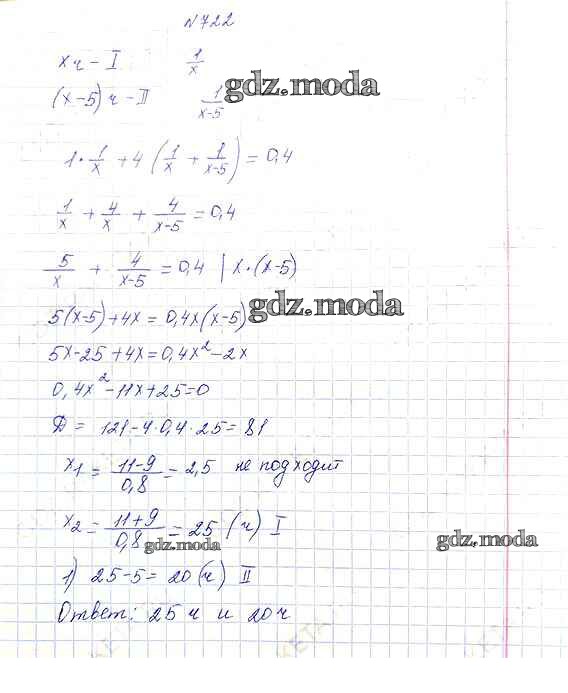 №722
x ч – I 1/x
(x–5) ч – II 1/(x–5)
gdz.moda
1·1/x + 4(1/x + 1/(x–5)) = 0,4
1/x + 4/x + 4/(x–5) = 0,4
5/x + 4/(x–5) = 0,4 | x·(x–5)
5(x–5)+4x = 0,4x(x–5)
gdz.moda
5x–25+4x=0,4x²–2x
0,4x²–11x+25=0
Д = 121–4·0,4·25=81
x₁ = (11–9)/0,8 = 2,5 не подходит
x₂ = (11+9)/0,8 = 25 (ч) I
gdz.moda gdz.moda
1) 25–5= 20 (ч) II
Ответ: 25 ч и 20 ч